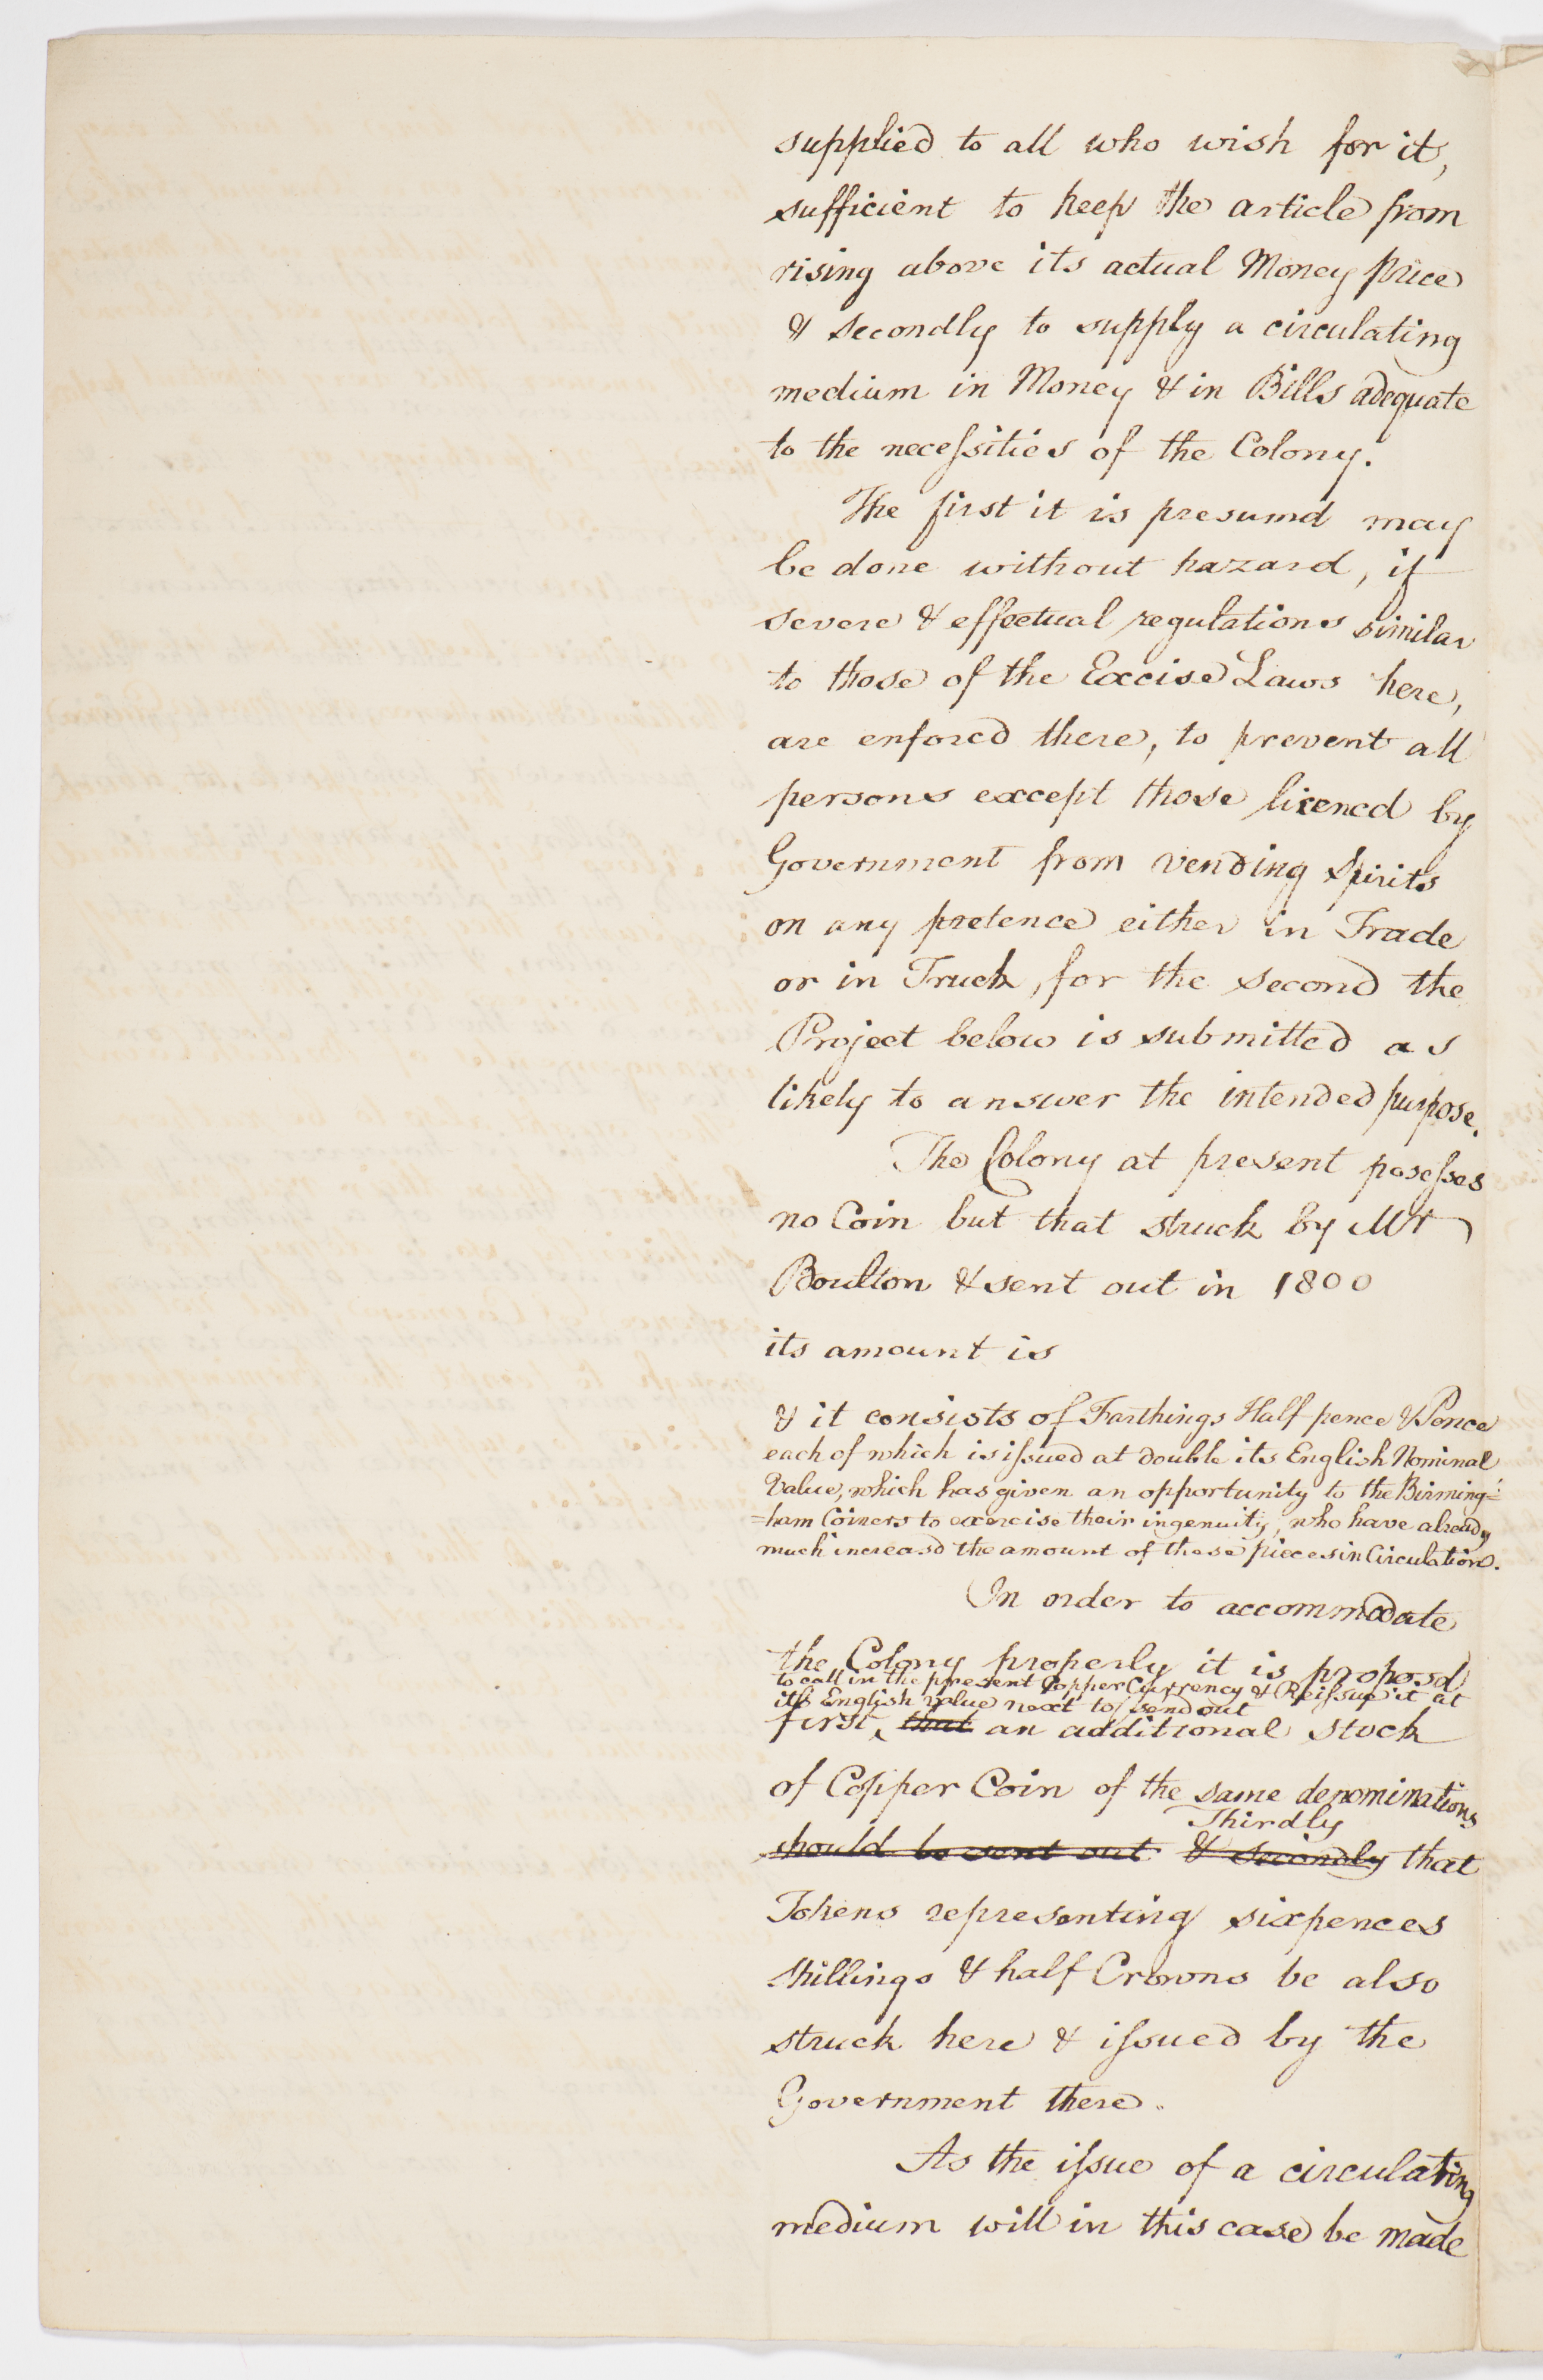 supplied to all who wish for it,
sufficient to keep the article from
rising above its actual Money price
& secondly to supply a circulating
medium in Money & in Bills adequate
to the neceſsities of the Colony.
The first it is presumd may
be done without hazard, if
severe & effectual regulations similar
to those of the Excise Laws here,
are enforcd there, to prevent all
persons except those licencd by
Government from vending Spirits
on any pretence either in Trade
or in Truck, for the second the
Project below is submitted as
likely to answer the intended purpose.
The Colony at present poseſses
no Coin but that struck by Mr
Boulton & sent out in 1800
its amount is
& it consists of Farthings Half pence & Pence
each of which is iſsued at double its English Nominal
Value, which has given an opportunity to the Birming=
=ham Coiners to exercise their ingenuity, who have already
much increasd the amount of these pieces in Circulation.
In order to accommodate
the Colony properly it is proposd
to call in the present Copper Currency & Reiſsue it at
its English value next to send out
first, that an additional stock
of Copper Coin of the same denominations
Thirdly
should be sent out & secondly that
Tokens representing sixpences
shillings & half Crowns be also
struck here & iſsued by the
Government there.
As the iſsue of a circulating
medium will in this case be made